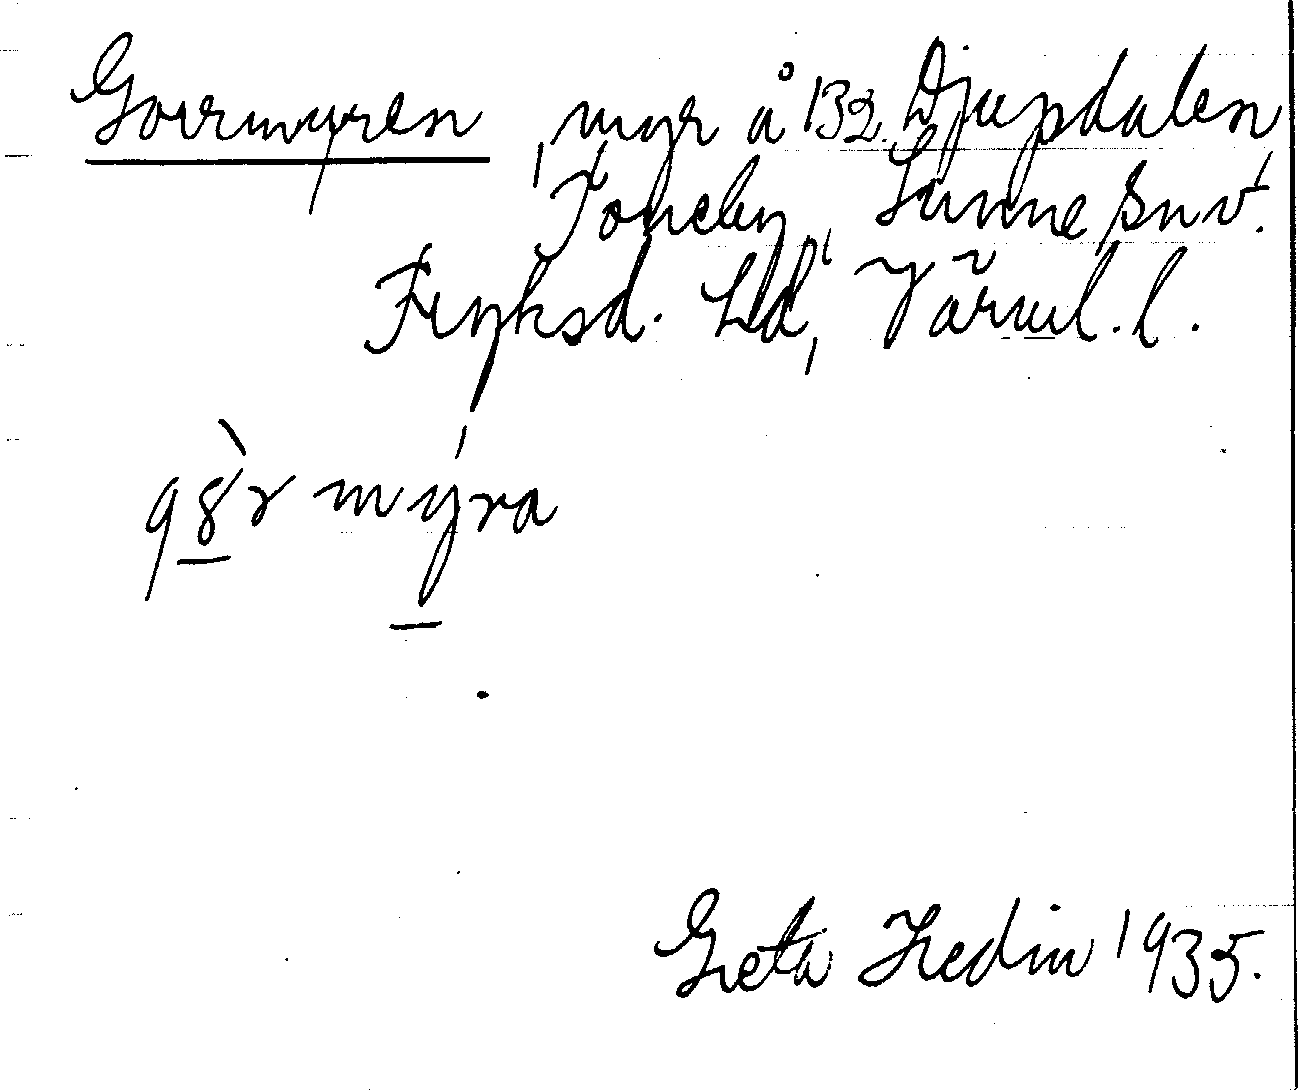 Gorrmyren, myr å 132 Djupdalen,
Toneby, Sunne snvt.
Fryksd. hd, Värml. l.
g8̀r mýra
Greta Hedin 1935.